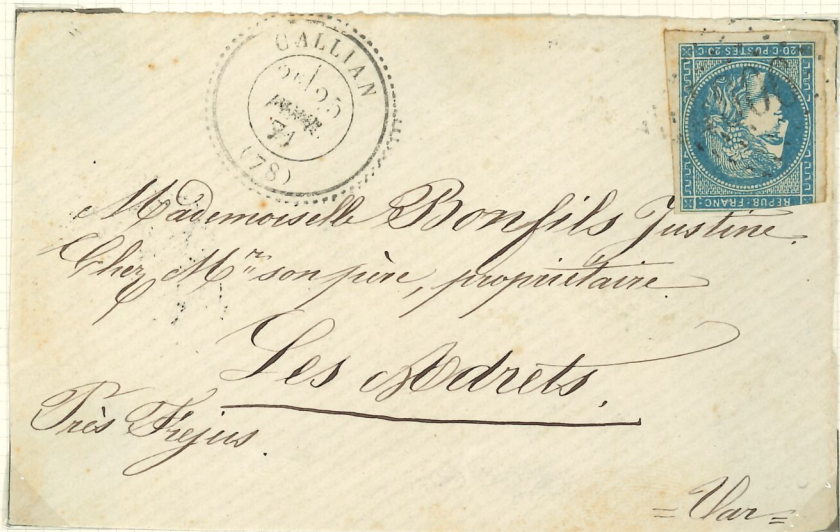 CALLIAN
25
71
(78)
20 C. POSTES 20 C.
REPUB. FRANC.
Mademoiselle Bonfils Justine.
Chez Mr. son père, propriétaire
Les Adrets.
Près Fréjus.
= Var =